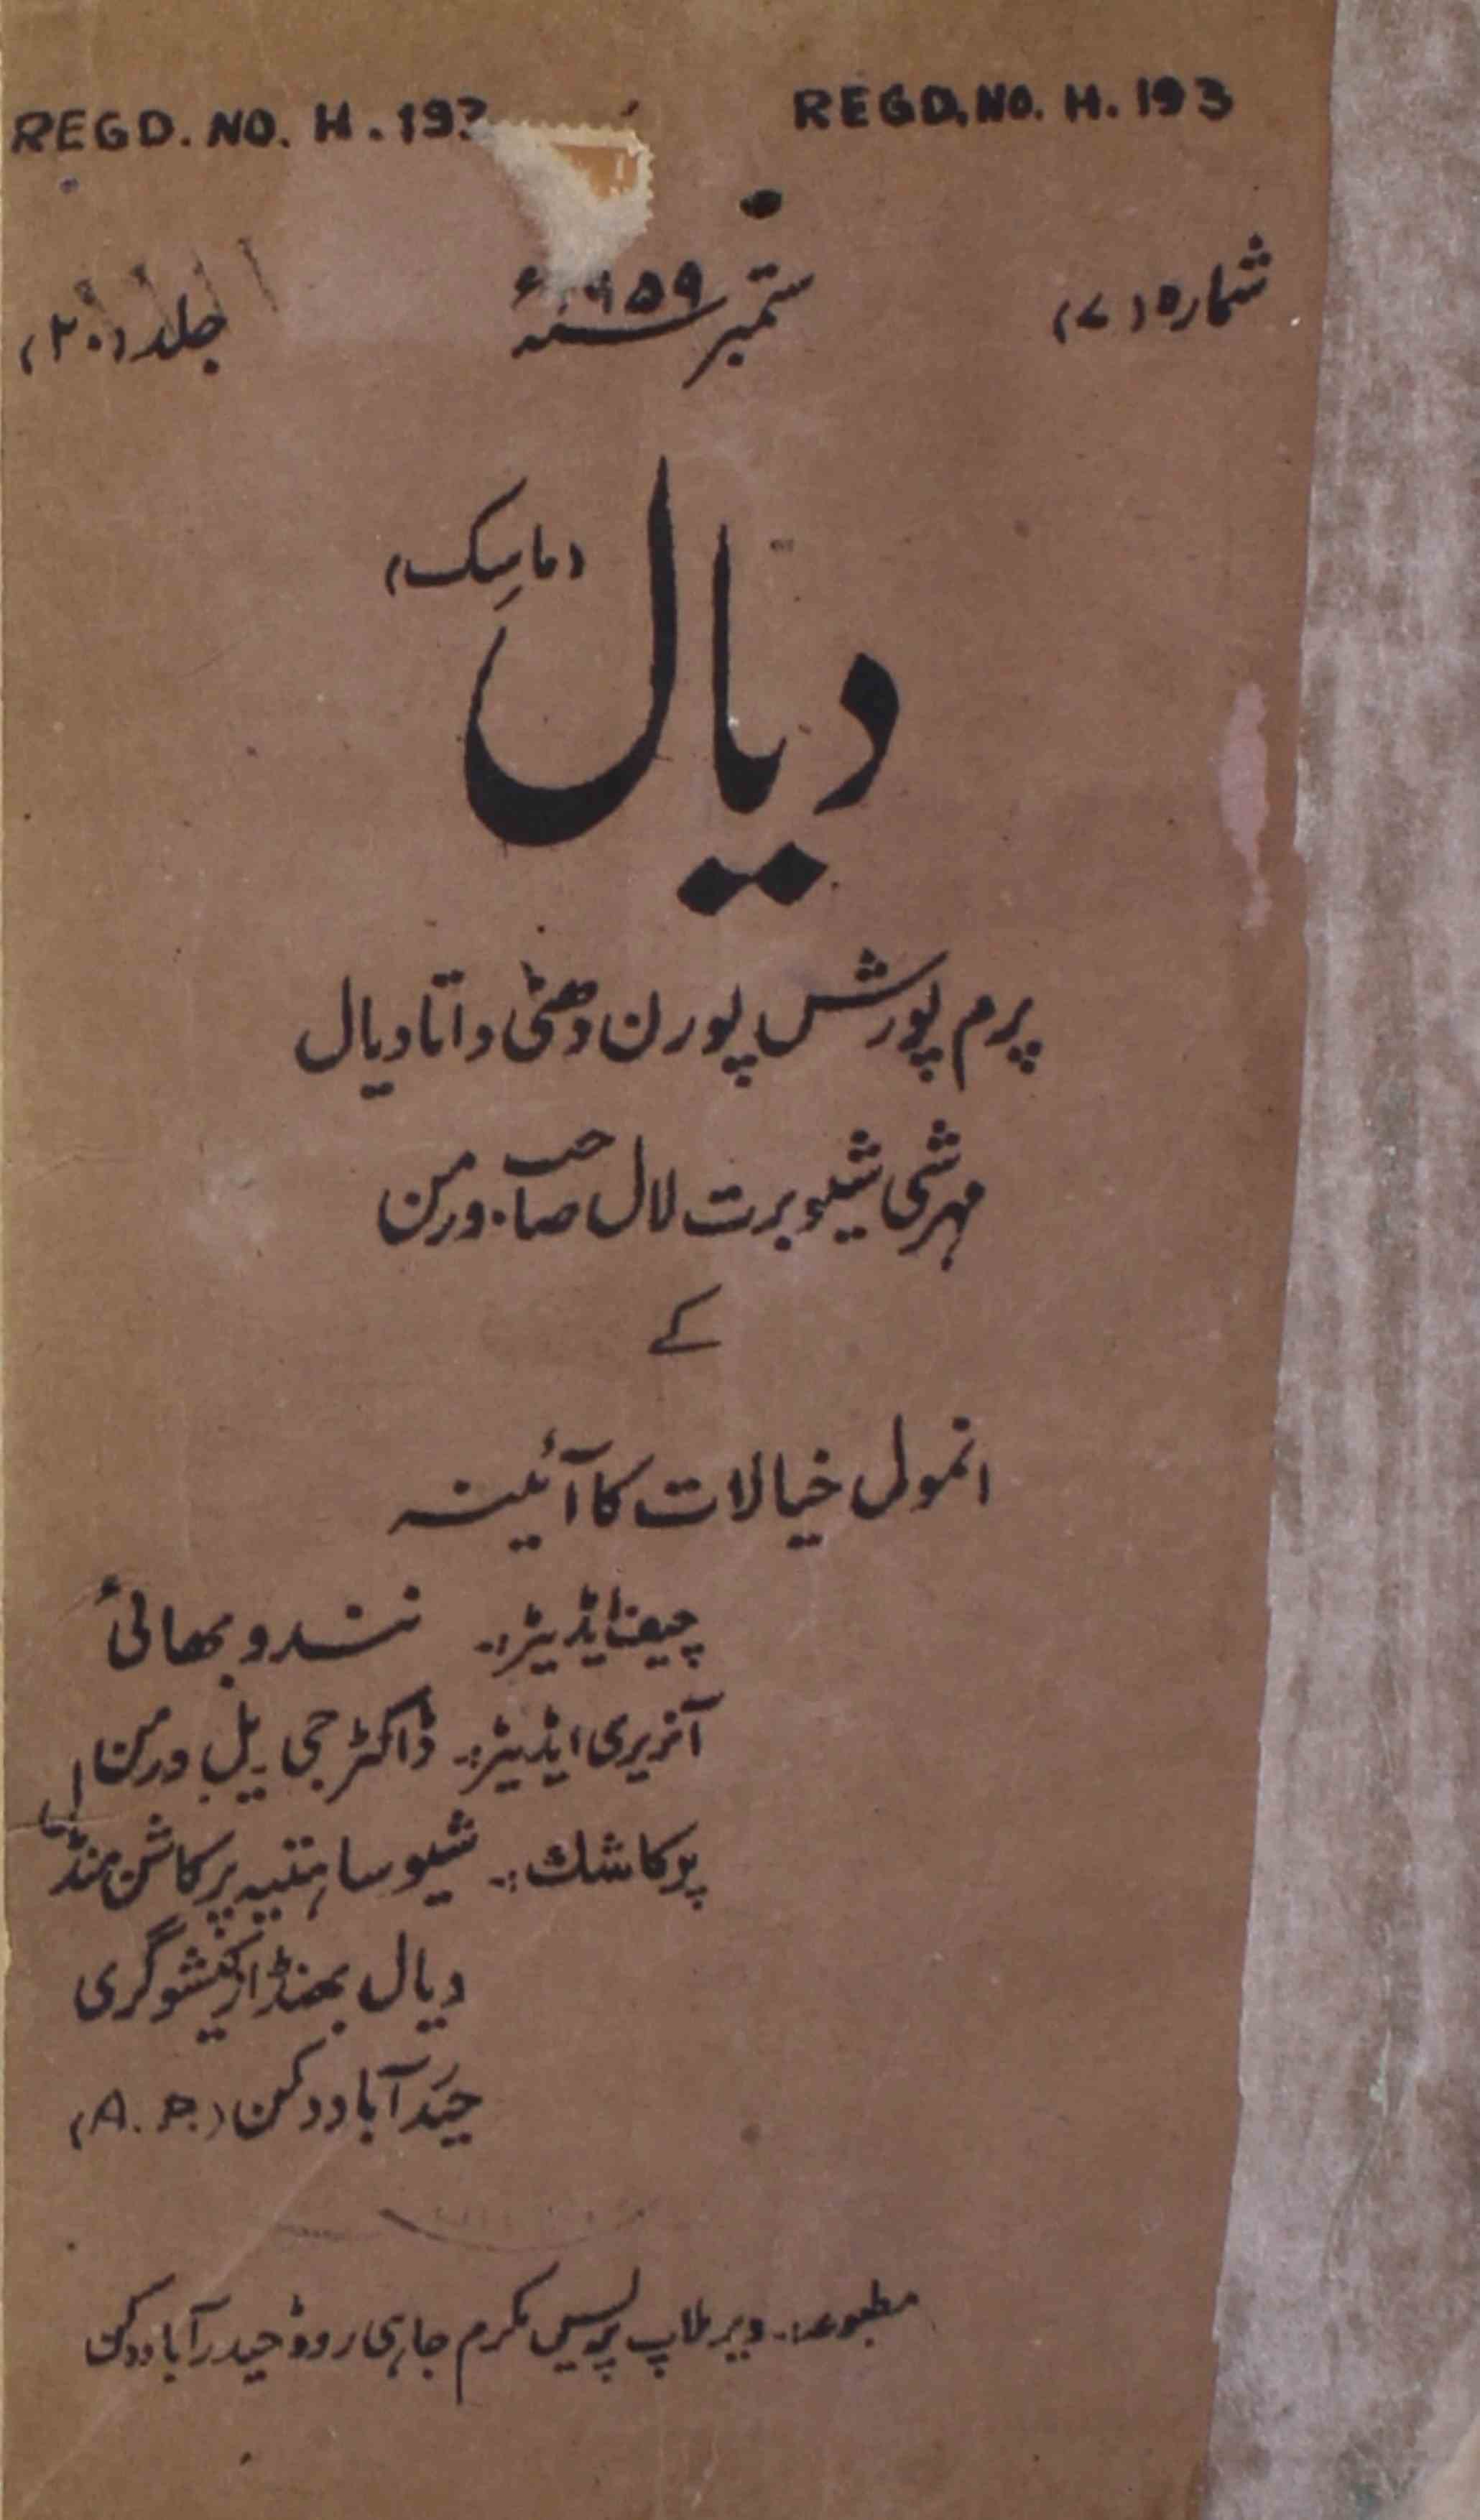 REGD. NO. H. 193 REGD. NO. H. 193
شمارہ (۷) ستمبر ۱۹۵۹ء جلد (۲۰)
(ماسِک)
دیال
پرم پورش پورن دھنی داتا دیال
مہرشی شیو برت لال صاحب ورمن
کے
انمول خیالات کا آئینہ
چیف ایڈیٹر:۔ نندو بھائی
آنریری ایڈیٹر:۔ ڈاکٹر جی یل ورمن
پرکاشک:۔ شیو ساہتیہ پرکاشن منڈل
دیال بھنڈار کیشوگری
حیدرآباد دکن (A. P.)
مطبوعہ:۔ ویر ملاپ پریس مکرم جاہی روڈ حیدرآباد دکن